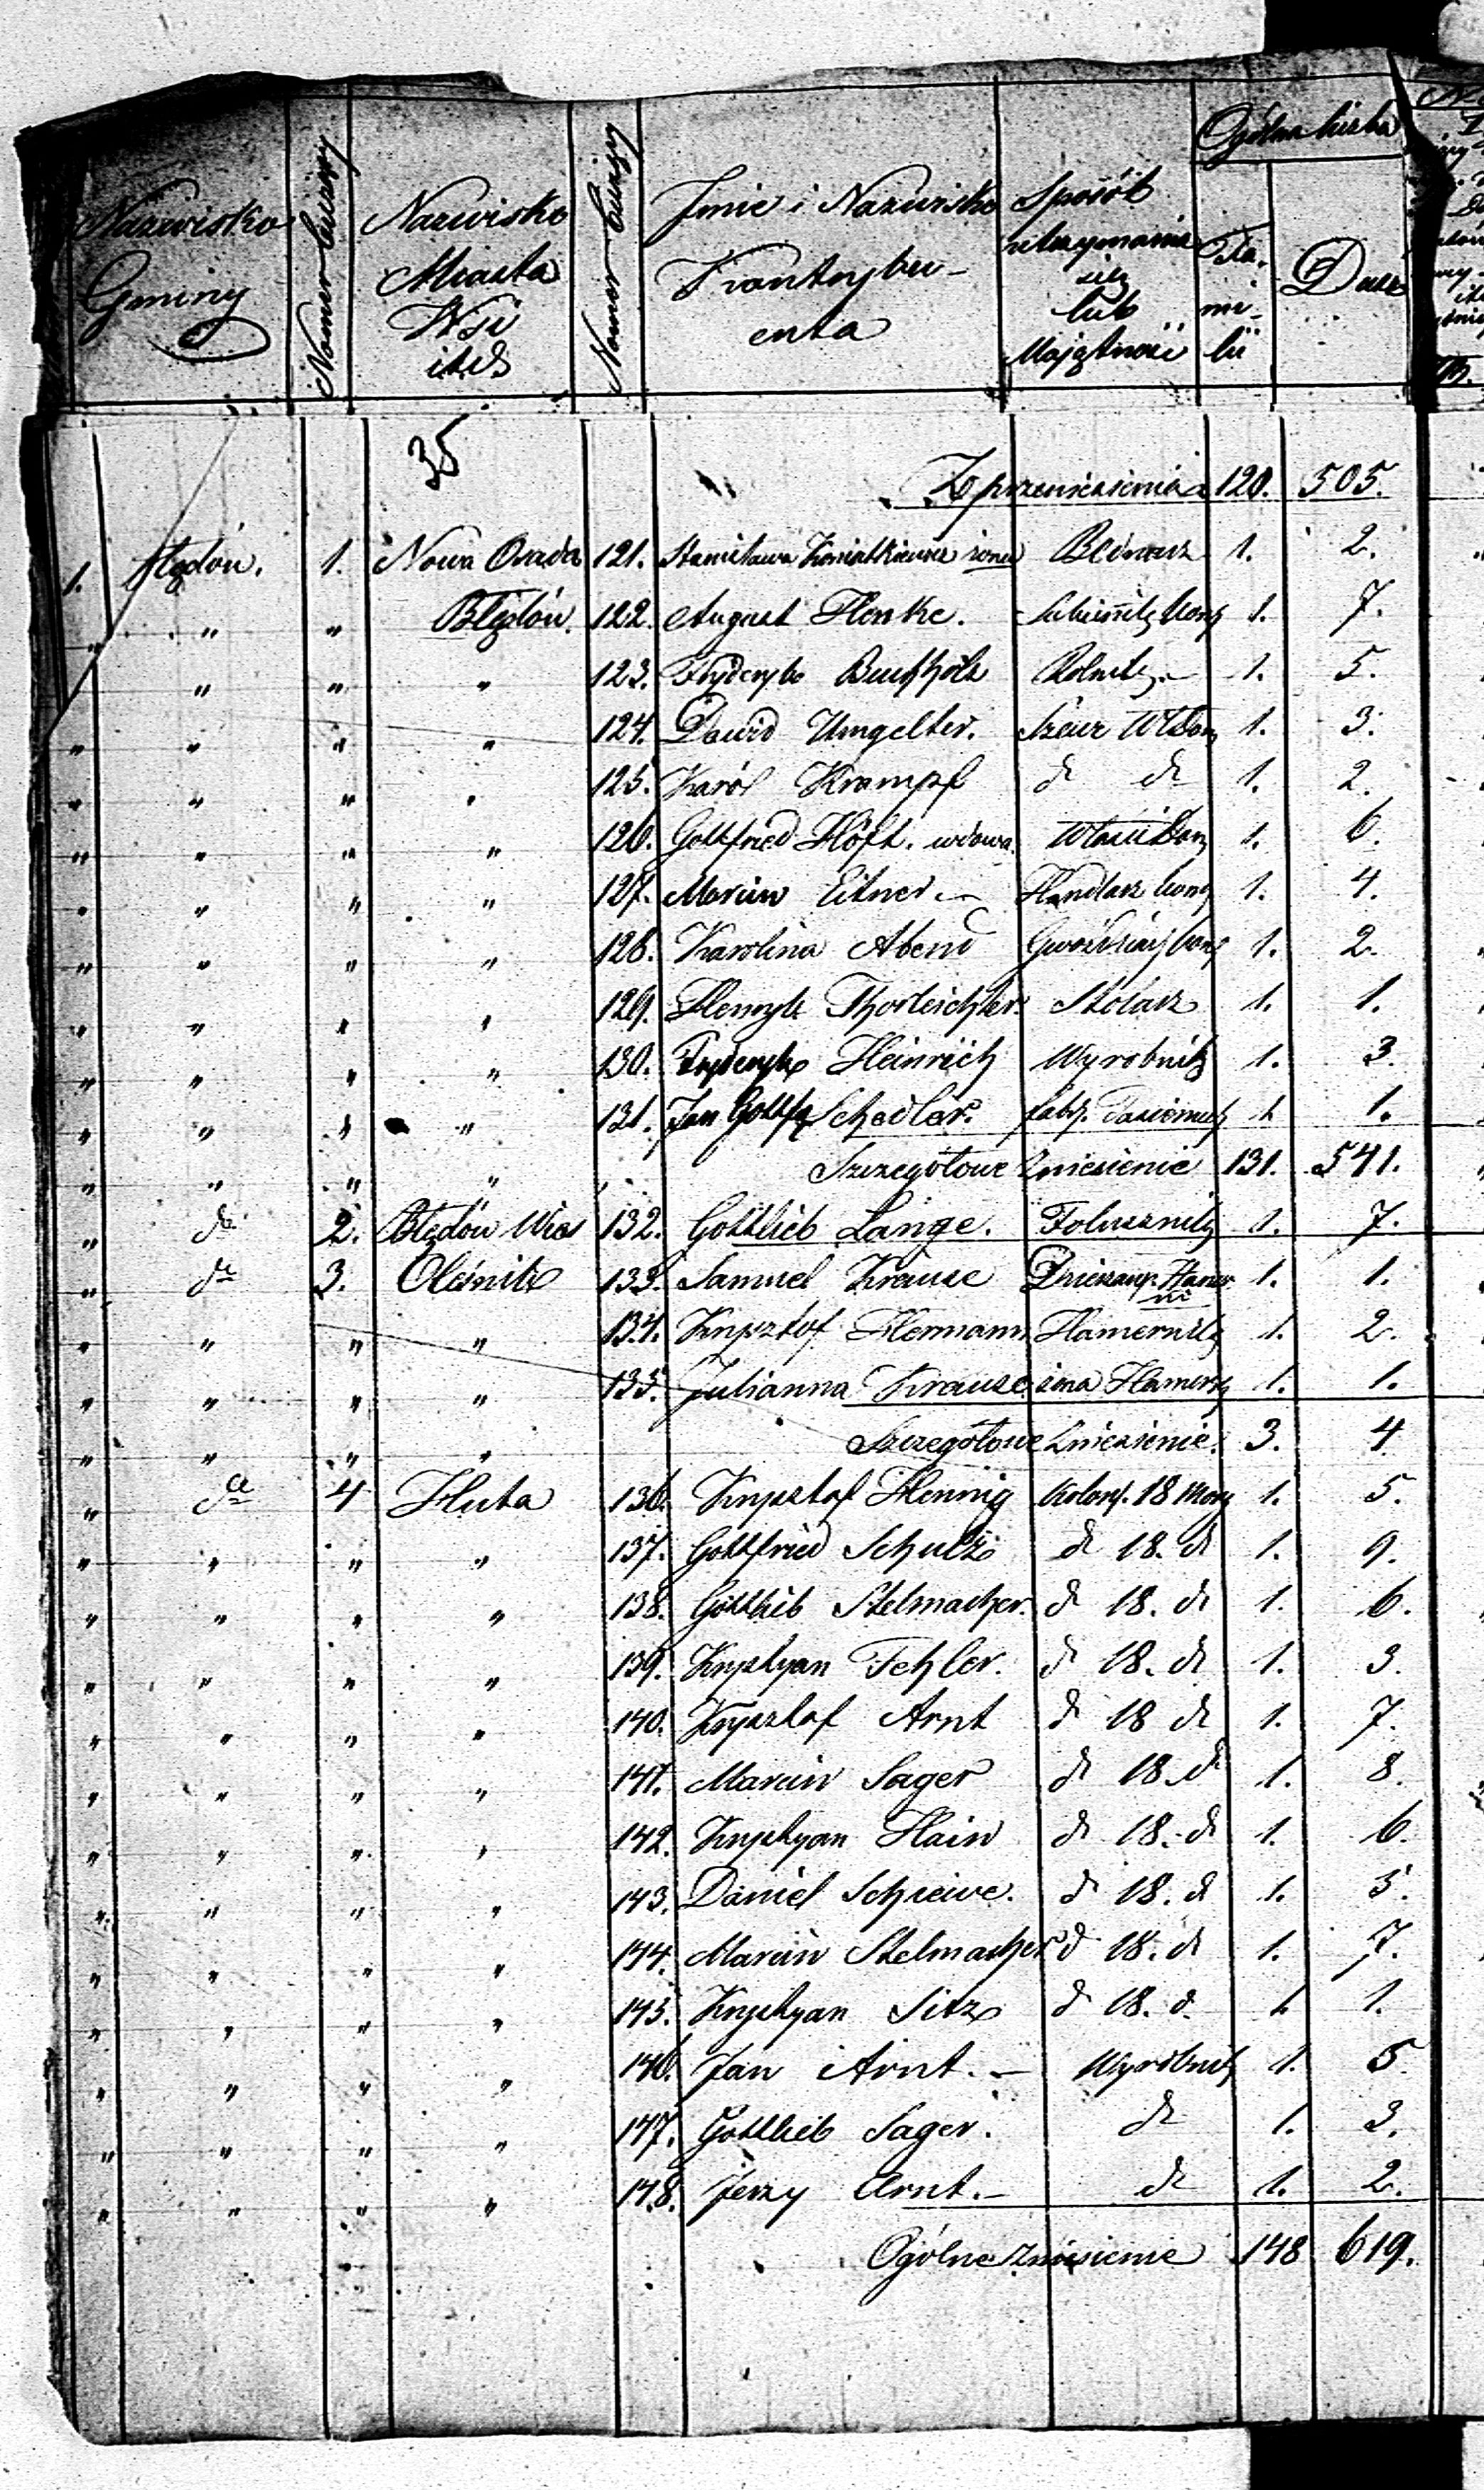 Nazwisko Gminy | Numer bieżący | Nazwisko Miasta Wsi itd | Numer bieżący | Jmie i Nazwisko Kontrybuenta | Sposób utrzymania się lub Majętność | Ogólna liczba | Familii | Dusz
35
Z przeniesienia 120. 505.
1. Błędów. 1. Nowa Osada 121. Stanisława żona Bednarz 1. 2.
" " " Błędów. 122. August Henke. 1. 7.
" " " 123. Fryderyk Buchholz Rolnik 1. 5.
" " " " 124. Dawid Umgelter. Szewc 1. 3.
" " " " 125. Karól Krampf dt dt 1. 2.
" " " " 126. Gottfried Höft. wdowa. 1. 6.
" " " " 127. Marcin Eitner Handlarz 1. 4.
" " " " 128. Karolina Abend 1. 2.
" " " " 129. Henryk Thorleichter. Stolarz 1. 1.
" " " " 130. Fryderyk Heinrich Wyrobnik 1. 3
" " " " 131. Jan Gottfr Schedler. 1. 1.
" " " " Szczegółowe Zniesienie 131. 541.
" dt 2. Błędów Wieś 132. Gottlieb Lange. Folusznik 1. 7.
" dt 3. Oleśnik 133. Samuel Krause 1. 1.
" " " " 134. Krysztof Hermann Hamernik 1. 2.
" " " " 135. Julianna Krause 1. 1.
" " " " Szczegółowe Zniesienie. 3. 4
" dt 4 Huta 136. Krysztof Hennig Kolon. 18 Morg 1. 5.
" " " " 137. Gottfried Schulz dt 18. dt 1. 9.
" " " " 138. Gottlieb Stelmacher. dt 18. dt 1. 6.
" " " " 139. Krystyan Fehler. dt 18. dt 1. 3.
" " " " 140. Krysztof Arnt dt 18 dt 1. 7.
" " " " 141. Marcin Sager dt 18. dt 1. 8.
" " " " 142. Krystyan Hain dt 18. dt 1. 6.
" " " " 143. Daniel Schreive. dt 18. dt 1. 5.
" " " " 144. Marcin Stelmacher dt 18. dt 1. 7.
" " " " 145. Krystyan Sitz dt 18. dt 1. 1.
" " " " 146. Jan Arnt. Wyrobnik 1. 5
" " " " 147. Gottlieb Sager. dt 1. 3.
" " " " 148. Jerzy Arnt. dt 1. 2.
Ogólne zniesienie 148 619.